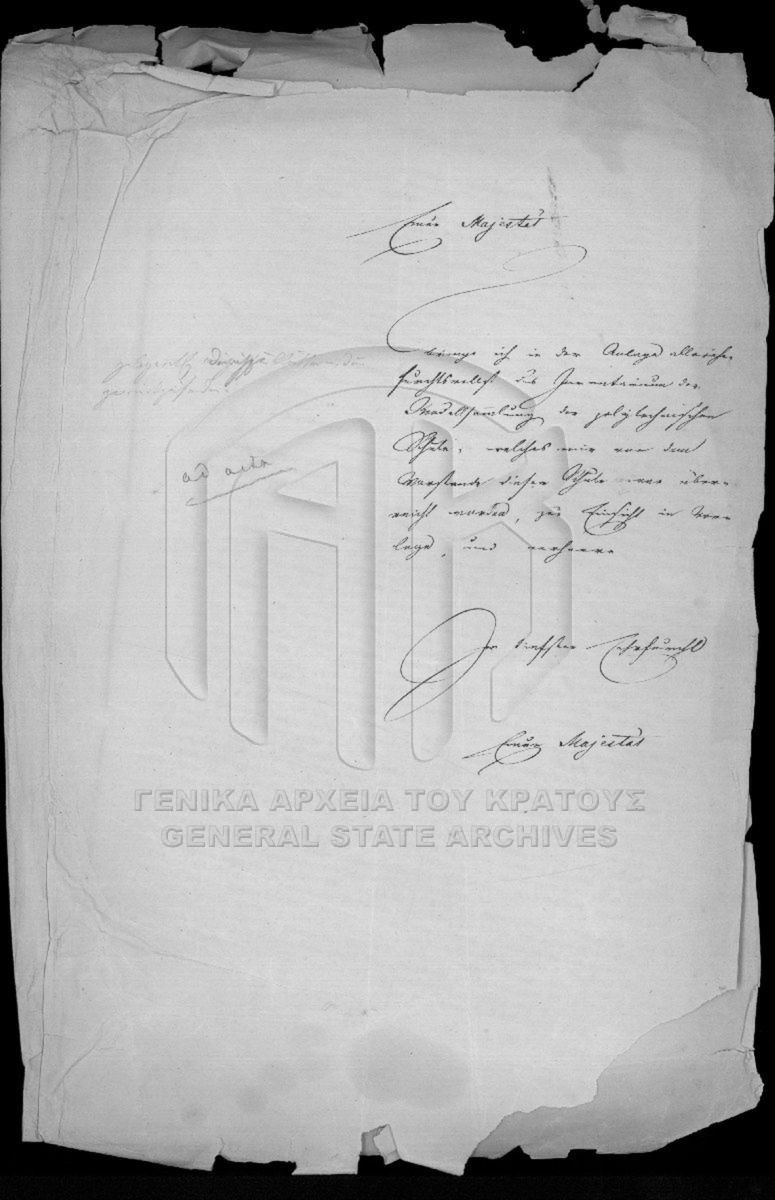 Euer Majestät
bringe ich in der Anlage allerehr-
furchtsvollst das Inventarium der
Modellsammlung der polytechnischen
Schule, welches mir von dem
Vorstande dieser Schule über-
reicht worden, zur Einsicht in Vor-
lage, und
In tiefster Ehrfurcht
Euer Majestät
ad acta
ΓΕΝΙΚΑ ΑΡΧΕΙΑ ΤΟΥ ΚΡΑΤΟΥΣ
GENERAL STATE ARCHIVES